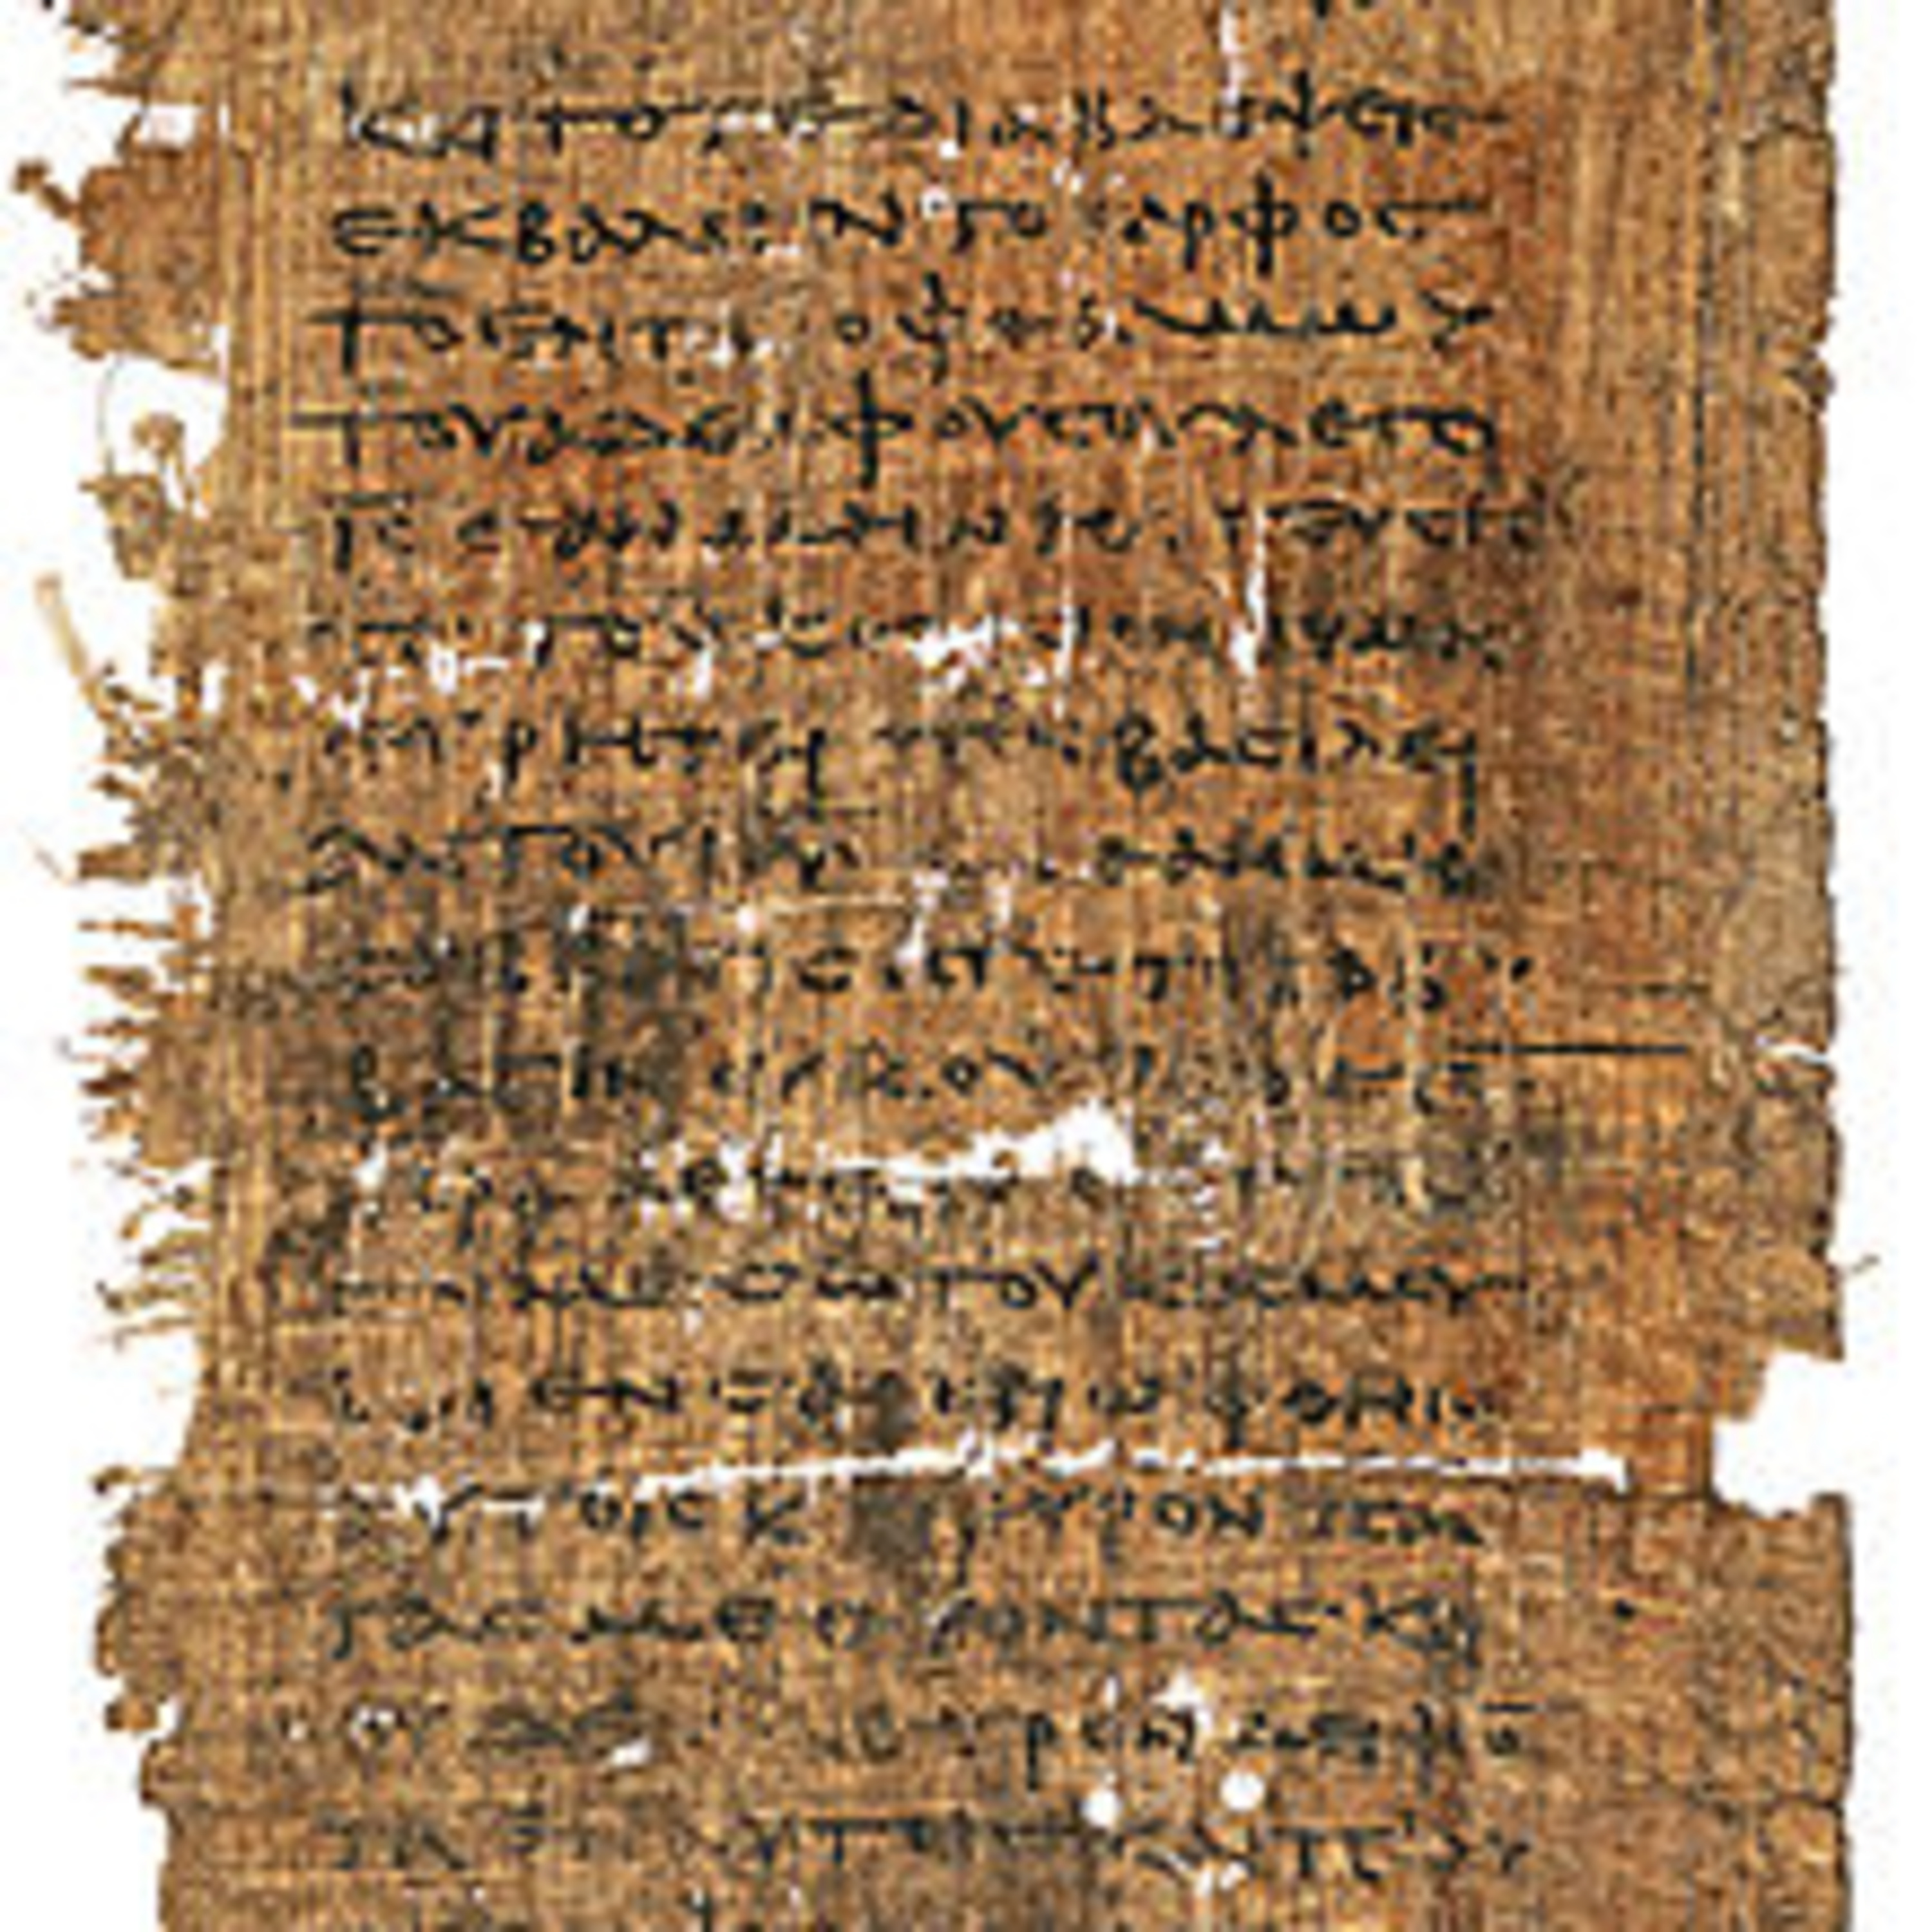 ΚΑΙ ΤΟΤΕ ΔΙΑΒΛΕΨΕΙΣ
ΕΚΒΑΛΕΙΝ ΤΟ ΚΑΡΦΟΣ
ΤΟ ΕΝ ΤΩ ΟΦΘΑΛΜΩ
ΤΟΥ ΑΔΕΛΦΟΥ ΣΟΥ ΛΕΓΕΙ
ΙΣ ΕΑΝ ΜΗ ΝΗΣΤΕΥΣΗ
ΤΑΙ ΤΟΝ ΚΟΣΜΟΝ ΟΥ ΜΗ
ΕΥΡΗΤΑΙ ΤΗΝ ΒΑΣΙΛΕΙ
ΑΝ ΤΟΥ ΘΥ ΚΑΙ ΕΑΝ ΜΗ
ΣΑΒΒΑΤΙΣΗΤΕ ΤΟ ΣΑΒ
ΒΑΤΟΝ ΟΥΚ ΟΨΕΣΘΕ ΤΟ
ΠΡΑ ΛΕΓΕΙ ΙΣ ΕΣΤΗΝ
ΕΝ ΜΕΣΩ ΤΟΥ ΚΟΣΜΟΥ
ΚΑΙ ΕΝ ΣΑΡΚΕΙ ΩΦΘΗΝ
ΑΥΤΟΙΣ ΚΑΙ ΕΥΡΟΝ ΠΑΝ
ΤΑΣ ΜΕΘΥΟΝΤΑΣ ΚΑΙ
ΟΥΔΕΝΑ ΕΥΡΟΝ ΔΕΙΨΩ
ΤΑ ΕΝ ΑΥΤΟΙΣ ΚΑΙ ΠΟ